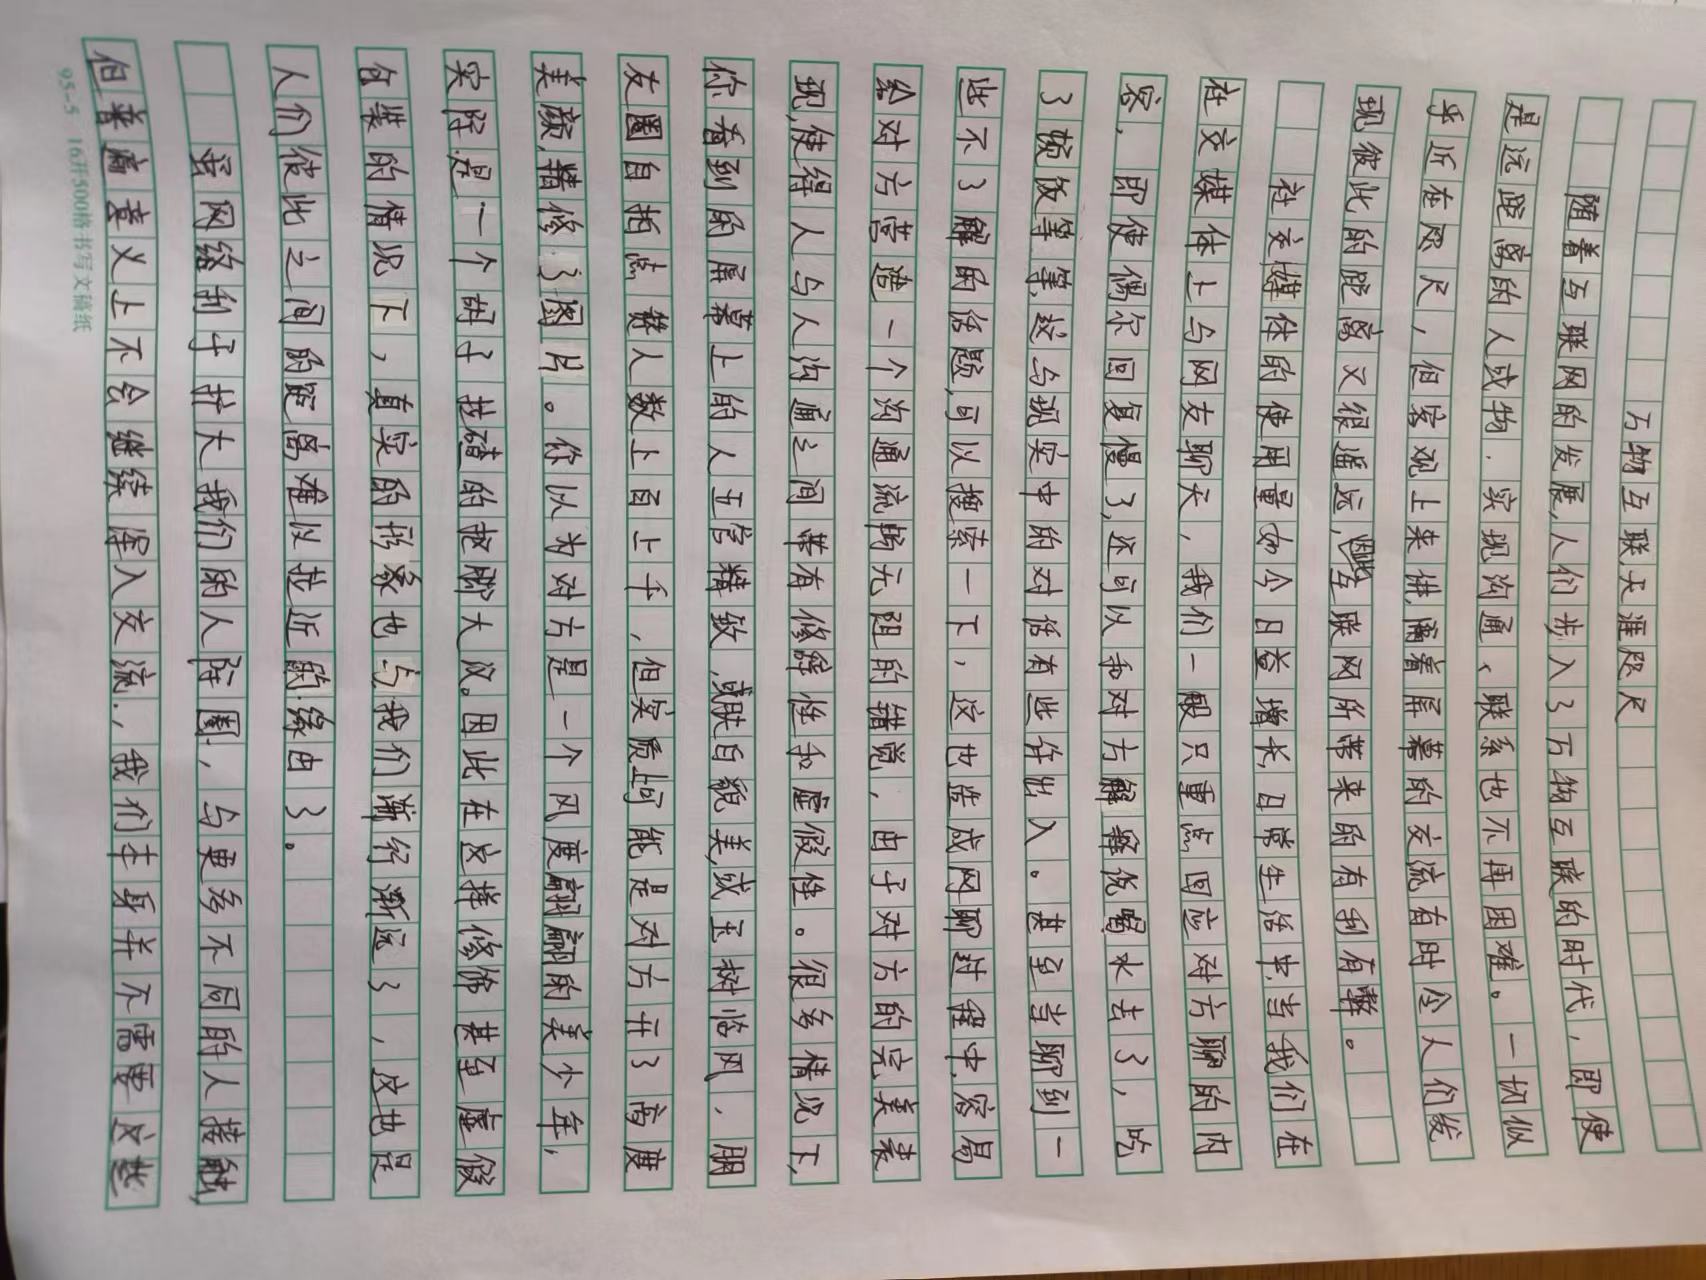 万物互联,天涯咫尺
随着互联网的发展,人们步入了万物互联的时代,即使
是远距离的人或物,实现沟通、联系也不再困难。一切似
乎近在咫尺,但客观上来讲,隔着屏幕的交流有时令人们发
现彼此的距离又很遥远,互联网所带来的有利有弊。
社交媒体的使用量如今日益增长,日常生活中,当我们在
社交媒体上与网友聊天,我们一般只重点回应对方聊的内
容,即使偶尔回复慢了,还可以和对方解释说喝水去了,吃
了顿饭等等,这与现实中的对话有些许出入。甚至当聊到一
些不了解的话题,可以搜索一下,这也造成网聊过程中,容易
给对方营造一个沟通流畅无阻的错觉,由于对方的完美表
现,使得人与人沟通之间带有修饰性和虚假性。很多情况下,
你看到的屏幕上的人五官精致,或肤白貌美,或玉树临风,朋
友圈自拍点赞人数上百上千,但实质可能是对方开了高度
美颜,精修了图片。你以为对方是一个风度翩翩的美少年,
实际是一个胡子拉碴的抠脚大汉。因此在这样修饰甚至虚假
包装的情况下,真实的形象也与我们渐行渐远了,这也是
人们彼此之间的距离难以拉近的缘由了。
虽网络利于扩大我们的人际圈,与更多不同的人接触,
但普遍意义上不会继续深入交流,我们本身并不需要这些
95-5 16开500格书写文稿纸